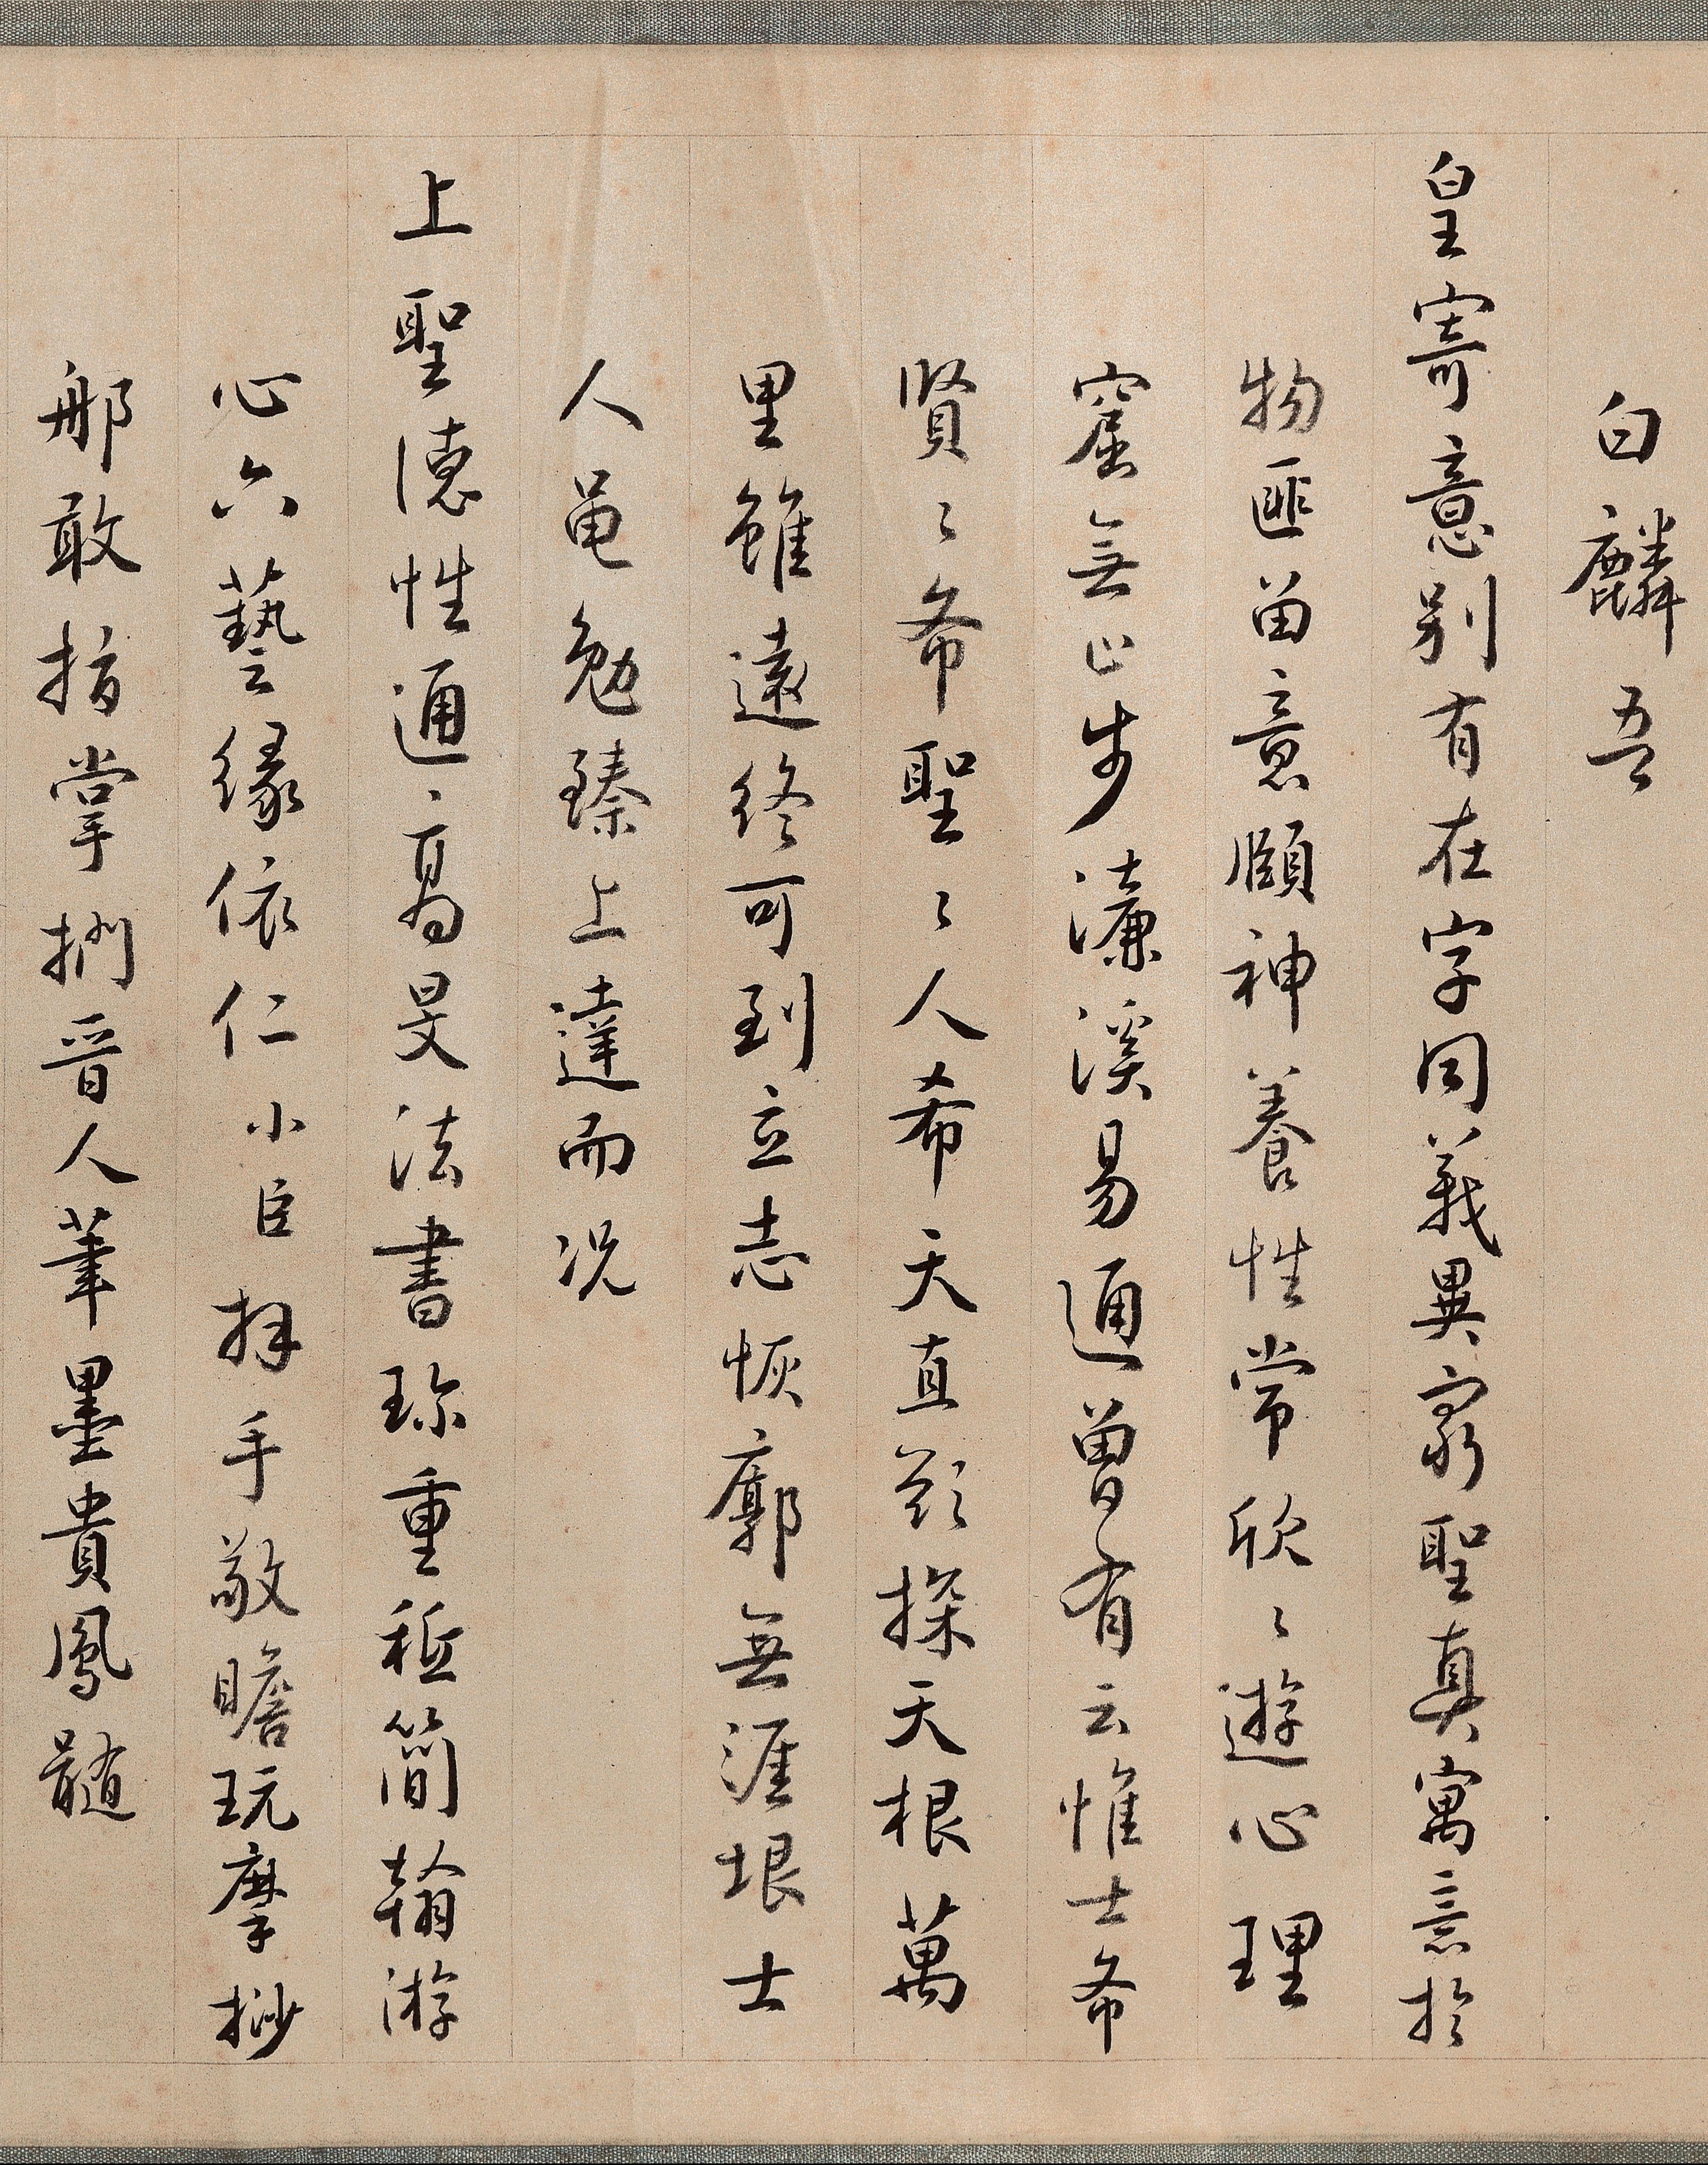 白麟吾
皇寄意別有在字同義異窮聖真寓意於
物匪留意頤神養性常欣〻遊心理
窟無止步濂溪易通曾有云惟士希
賢〻希聖〻人希天直欲探天根萬
里雖遠終可到立志恢廓無涯垠士
人黽勉臻上達而況
上聖德性通高旻法書珍重秪簡翰游
心六藝緣依仁小臣拜手敬瞻玩摩挱
那敢指掌捫晉人筆墨貴鳳髓